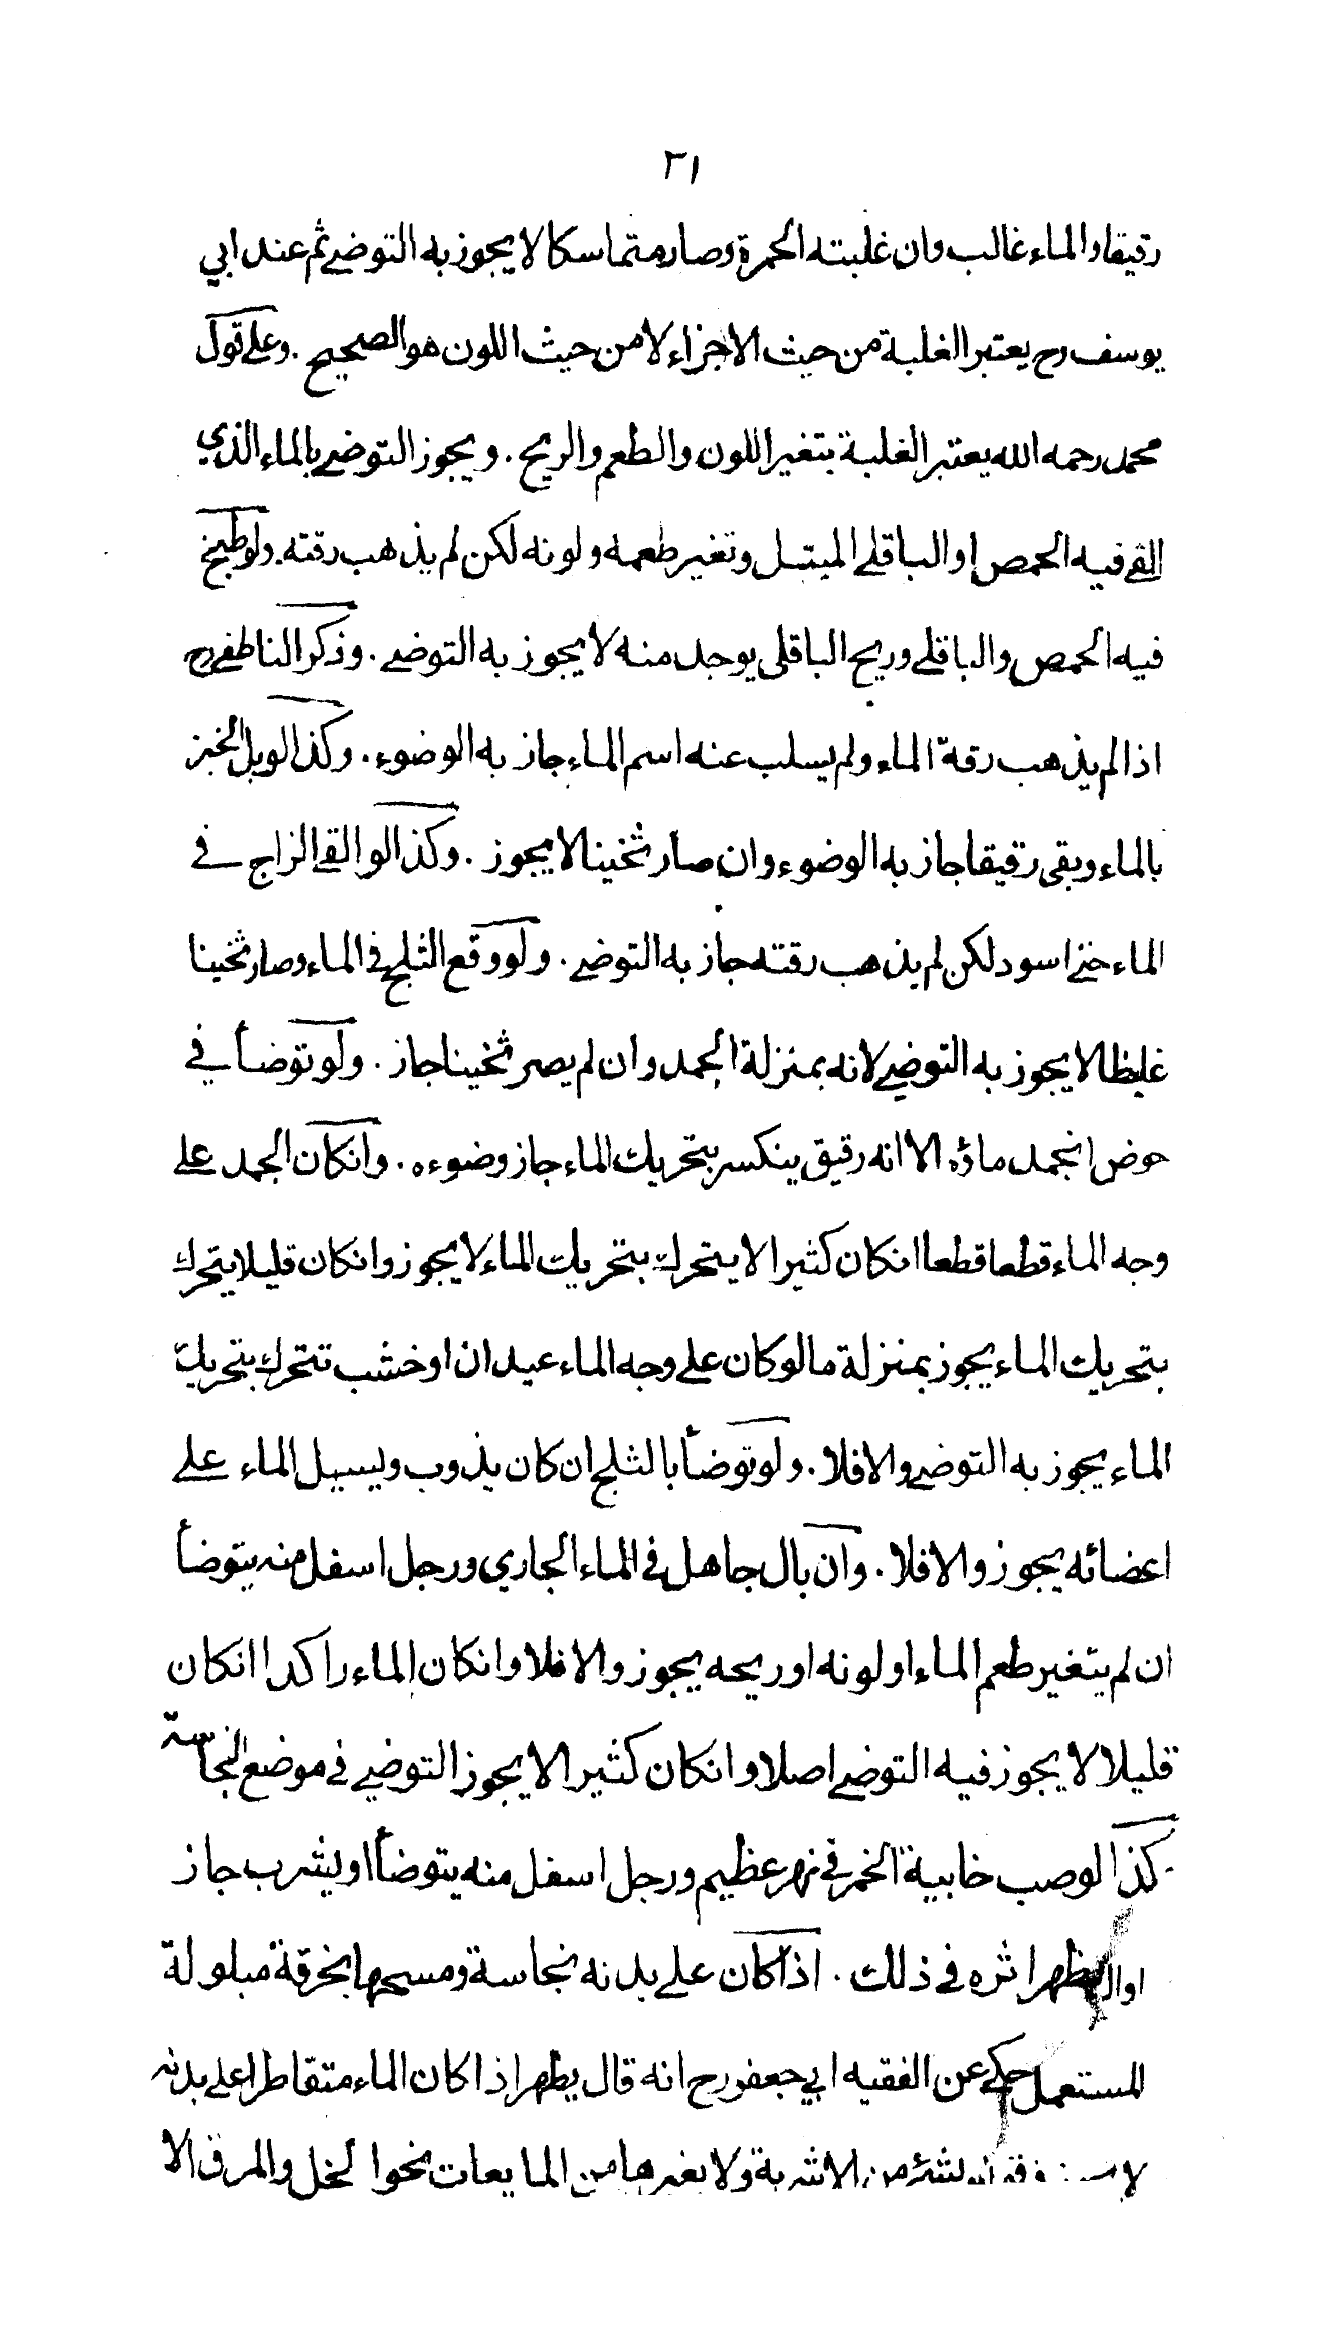 ٣١
رقيقا والماء غالب وان غلبته الحمرة وصار متماسكا لا يجوز به التوضي ثم عند ابي
يوسف رح يعتبر الغلبة من حيث الاجزاء لا من حيث اللون هو الصحيح . وعلى قول
محمد رحمه الله يعتبر الغلبة بتغير اللون والطعم والريح . ويجوز التوضي بالماء الذي
القي فيه الحمص او الباقلى المبتل وتغير طعمه ولونه لكن لم يذهب رقته . ولو طبخ
فيه الحمص والباقلى وريح الباقلى يوجد منه لا يجوز به التوضي . وذكر الناطفي رح
اذا لم يذهب رقة الماء ولم يسلب عنه اسم الماء جاز به الوضوء . وكذا لو بل الخبز
بالماء وبقى رقيقا جاز به الوضوء وان صار ثخينا لا يجوز . وكذا لو القي الزاج في
الماء حتى اسود لكن لم يذهب رقته جاز به التوضي . ولو وقع الثلج في الماء وصار ثخينا
غليظا لا يجوز به التوضي لانه بمنزلة الجمد وان لم يصر ثخينا جاز . ولو توضأ في
حوض انجمد ماؤه الا انه رقيق ينكسر بتحريك الماء جاز وضوءه . وانكان الجمد على
وجه الماء قطعا قطعا انكان كثيرا لا يتحرك بتحريك الماء لا يجوز وانكان قليلا يتحرك
بتحريك الماء يجوز بمنزلة ما لو كان على وجه الماء عيدان او خشب تتحرك بتحريك
الماء يجوز به التوضي والا فلا . ولو توضأ بالثلج ان كان يذوب ويسيل الماء على
اعضائه يجوز والا فلا . وان بال جاهل في الماء الجاري ورجل اسفل منه يتوضأ
ان لم يتغير طعم الماء او لونه او ريحه يجوز والا فلا وانكان الماء راكدا انكان
قليلا لا يجوز فيه التوضي اصلا وانكان كثيرا لا يجوز التوضي في موضع النجاسة
كذا لو صب خابية الخمر في نهر عظيم ورجل اسفل منه يتوضأ او يشرب جاز
يظهر اثره في ذلك . اذا كان على بدنه نجاسة ومسحها بخرقة مبلولة
المستعمل حكي عن الفقيه ابي جعفر رح انه قال يطهر اذا كان الماء متقاطرا على بدنه
بشئ من الاشربة ولا بغيرها من المايعات نحو الخل والمرق الا